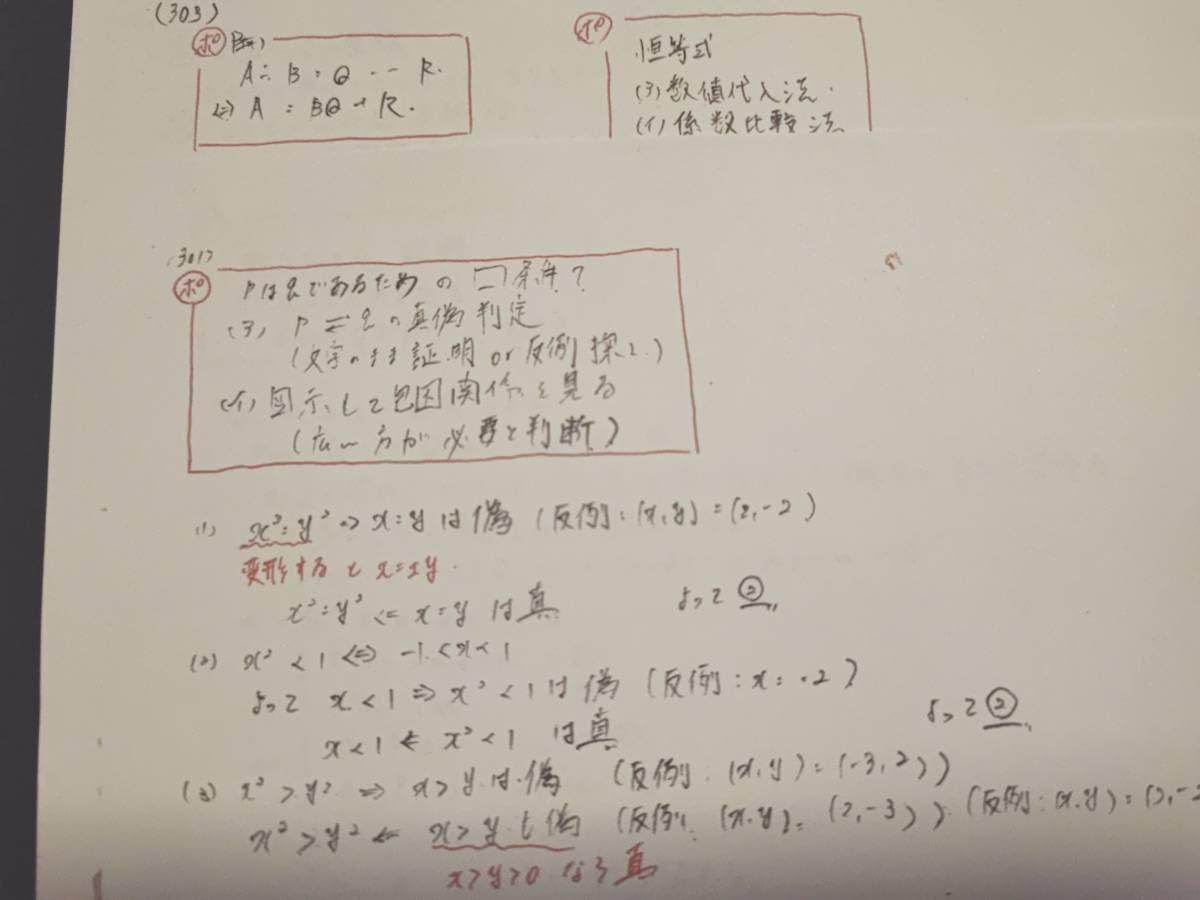 (303)
ポ 例)
A÷B=Q…R.
⇔ A=BQ+R.
ポ
恒等式
(ア)数値代入法.
(イ)係数比較法
(301)
ポ
PはqであるためのK□条件?
(ア) P⇄qの真偽判定
(文字のまま証明or反例探し)
(イ)図示して包含関係を見る
(広い方が必要と判断)
(1) x²=y²⇒x=yは偽(反例:(x,y)=(2,-2)
変形するとx=±y.
x²=y²⇐x=yは真
よって②
(2) x²<1⇔-1<x<1
よってx<1⇒x²<1は偽(反例:x=-2)
x<1⇐x²<1 は真
よって②
(3) x²>y²⇒x>yは偽 (反例.(x,y)=(-3,2))
x²>y²⇐x>yも偽(反例.(x,y)=(2,-3)) (反例:(x,y)=(
x>y>0なら真